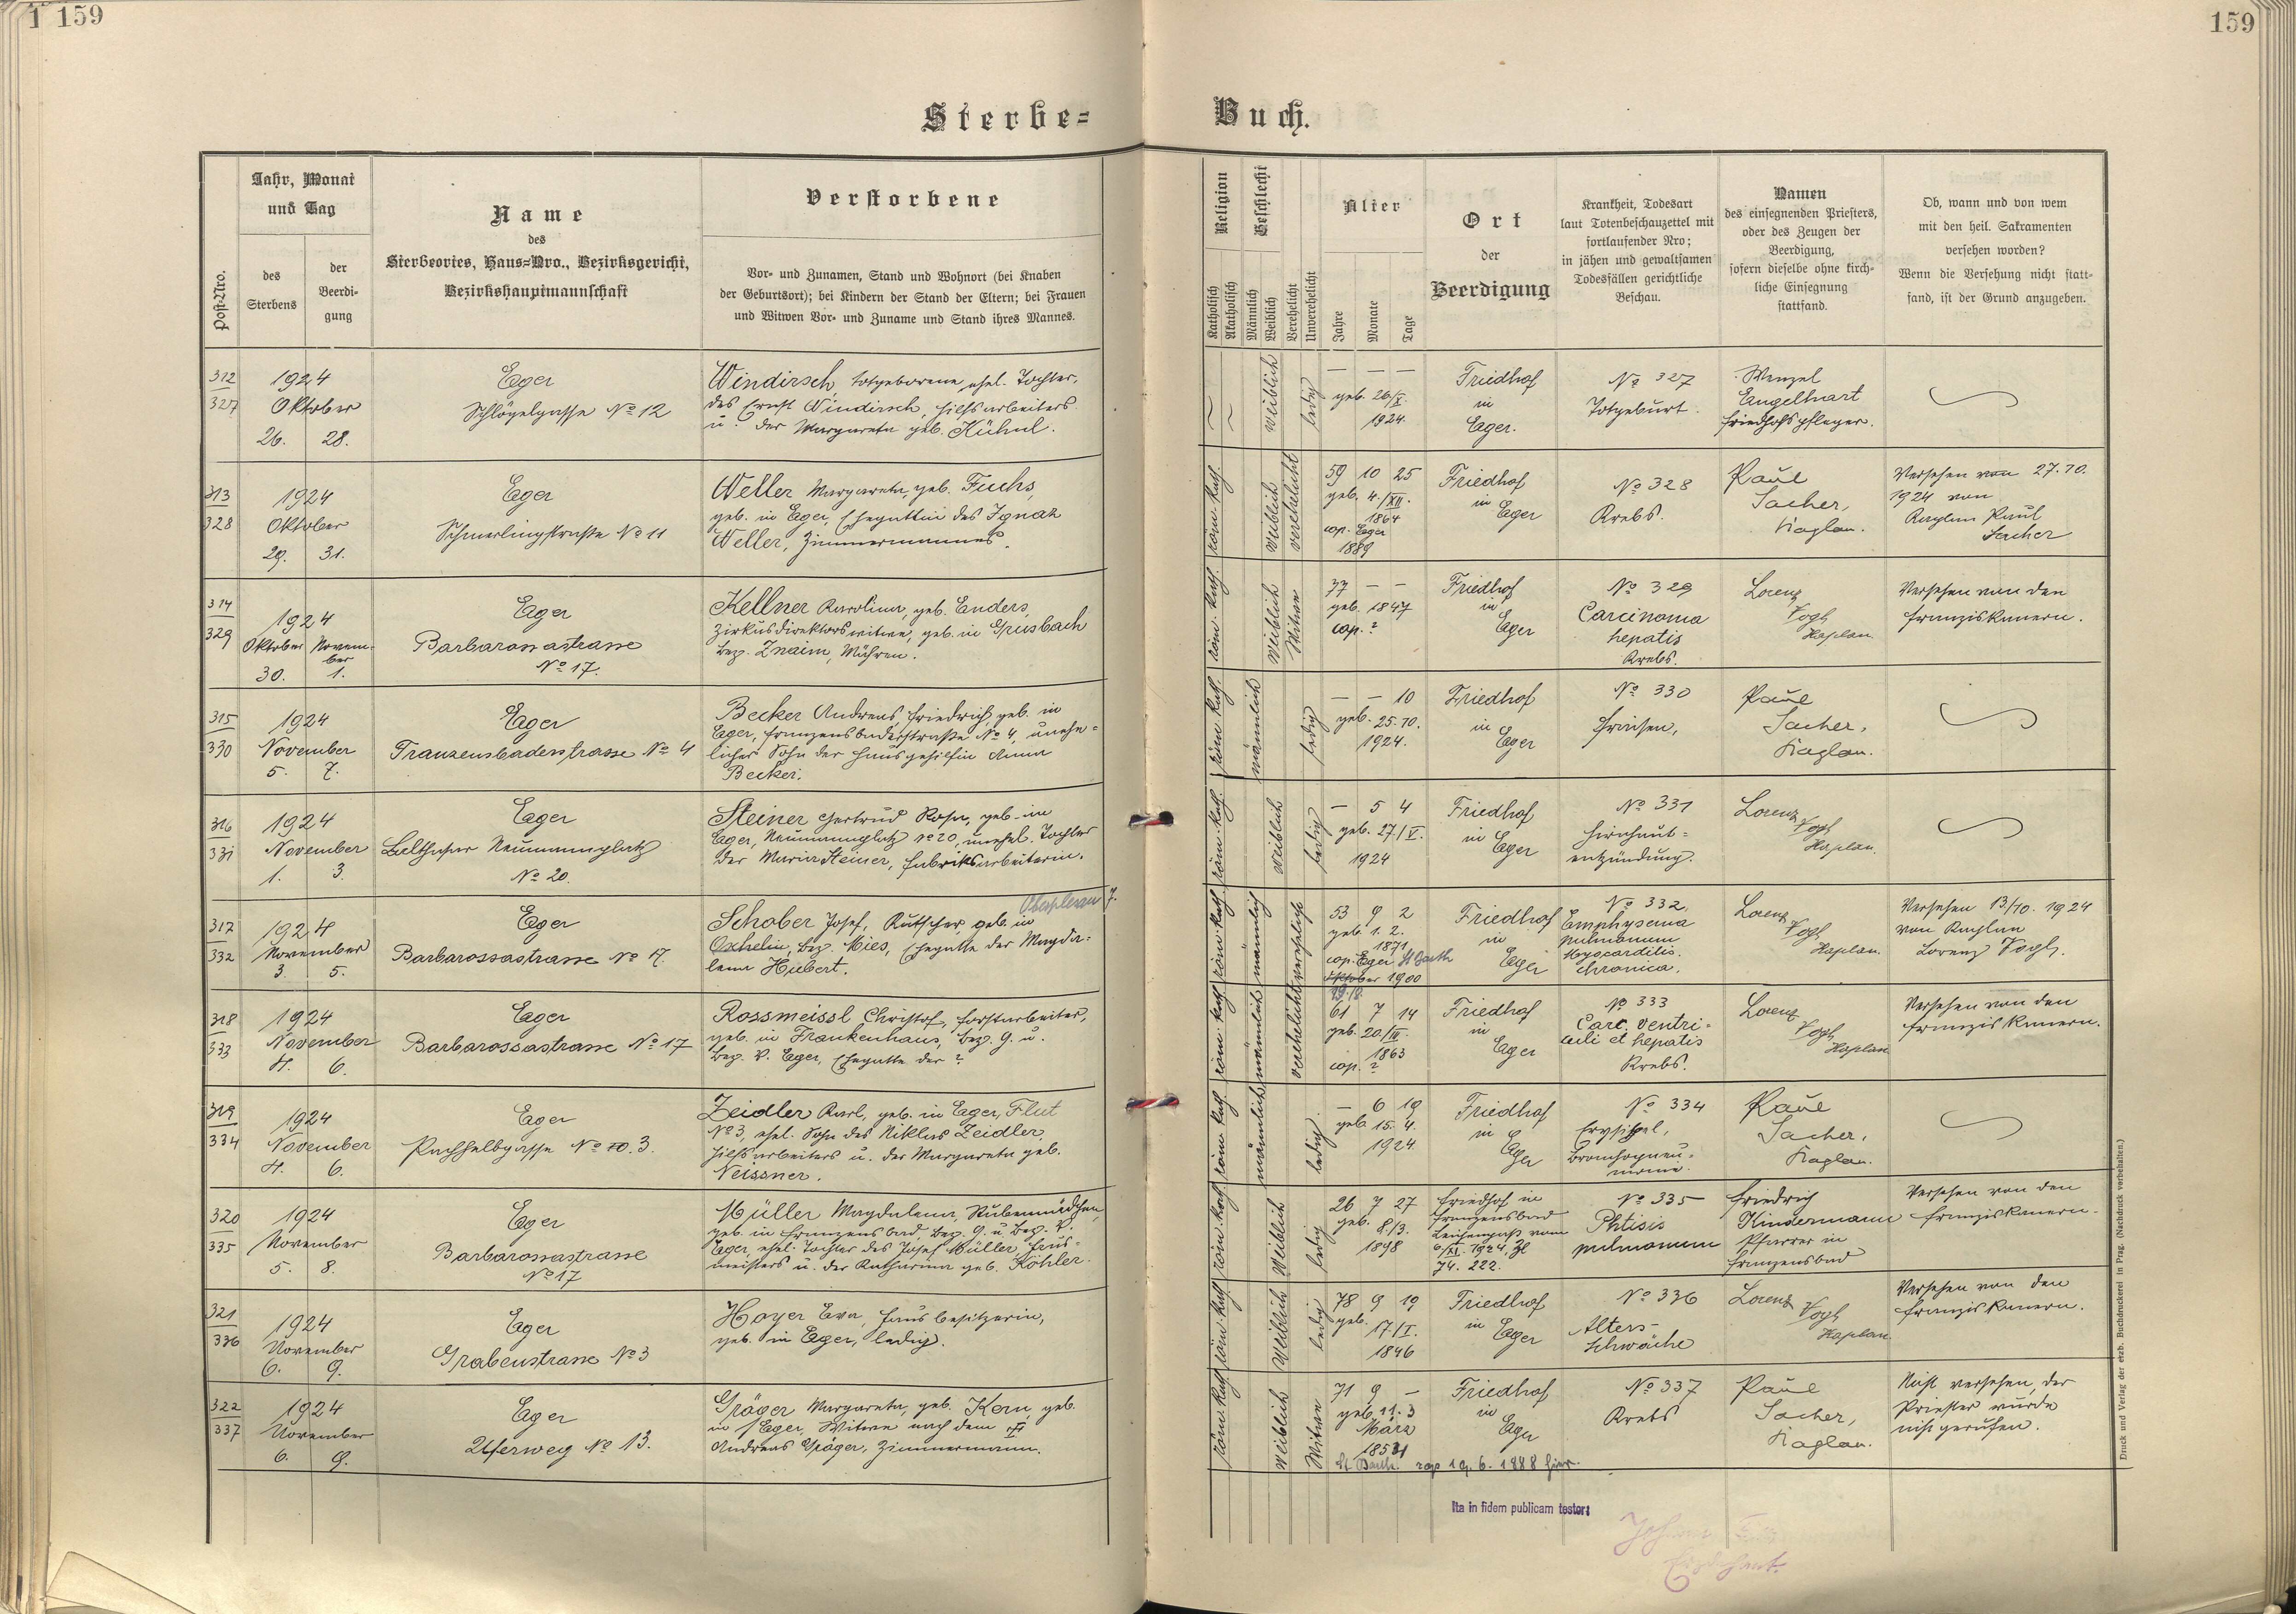 1 159
159
Sterbe-
Buch.
Post-Nro.
Jahr, Monat
und Tag
des
Sterbens
der
Beerdi-
gung
Name
des
Sterbeortes, Haus-Nro., Bezirksgericht,
Bezirkshauptmannschaft
Verstorbene
Vor- und Zunamen, Stand und Wohnort (bei Knaben
der Geburtsort); bei Kindern der Stand der Eltern; bei Frauen
und Witwen Vor- und Zuname und Stand ihres Mannes.
Religion
Katholisch
Akatholisch
Geschlecht
Männlich
Weiblich
Verehelicht
Unverehelicht
Alter
Jahre
Monate
Tage
Ort
der
Beerdigung
Krankheit, Todesart
laut Totenbeschauzettel mit
fortlaufender Nro;
in jähen und gewaltsamen
Todesfällen gerichtliche
Beschau.
Namen
des einsegnenden Priesters,
oder des Zeugen der
Beerdigung,
sofern dieselbe ohne kirch-
liche Einsegnung
stattfand.
Ob, wann und von wem
mit den heil. Sakramenten
versehen worden?
Wenn die Versehung nicht statt-
fand, ist der Grund anzugeben.
312
327
1924
Oktober
26. 28.
Eger
Schlögelgasse No 12
Windirsch totgeborene ehel. Tochter,
des Ernst Windirsch, Hilfsarbeiters
u. der Margareta geb. Kühnl.
weiblich
ledig
— — —
geb. 26/X.
1924.
Friedhof
in
Eger.
No 327
Totgeburt.
Wenzel
Engelhart
Friedhofspfleger.
313
328
1924
Oktober
29. 31.
Eger
Schmerlingstraße No 11
Weller Margareta, geb. Fuchs,
geb. in Eger, Ehegattin des Ignaz
Weller, Zimmermannes.
röm. kath.
weiblich
verehelicht
59 10 25
geb. 4./XII.
1864
cop. Eger
1889
Friedhof
in
Eger
No 328
Krebs.
Paul
Sacher,
Kaplan.
Versehen von 27.10.
1924 von
Kaplan Paul
Sacher
314
329
1924
Oktober Novem-
ber
30. 1.
Eger
Barbarossastrasse
No 17.
Kellner Karolina, geb. Enders,
Zirkusdirektorswitwe, geb. in Grusbach
bez. Znaim, Mähren.
röm. kath.
weiblich
Witwe
77 — —
geb. 1847
cop. ?
Friedhof
in
Eger
No 329
Carcinoma
hepatis
Krebs.
Lorenz
Vogl,
Kaplan
Versehen von den
Franziskanern.
315
330
1924
November
5. 7.
Eger
Franzensbaderstrasse No 4
Becker Andreas, Friedrich, geb. in
Eger, Franzensbaderstraße No 4, unehe-
licher Sohn der Hausgehilfin Anna
Becker.
röm. kath.
männlich
ledig
— — 10
geb. 25.10.
1924.
Friedhof
in
Eger
No 330
Fraisen,
Paul
Sacher,
Kaplan.
316
331
1924
November
1. 3.
Eger
Balthasar Neumannplatz
No 20.
Steiner Gertrud Rosa, geb. in
Eger, Neumannplatz No 20, unehel. Tochter
der Maria Steiner, Fabriksarbeiterin.
röm. kath.
weiblich
ledig
— 5 4
geb. 27./V.
1924
Friedhof
in Eger
No 331
Hirnhaut-
entzündung.
Lorenz
Vogl,
Kaplan.
317
332
1924
November
3. 5.
Eger
Barbarossastrasse No 17.
Schober Josef, Kutscher, geb. in
Oschelin, bez. Mies, Ehegatte der Magda-
lena Hubert.
röm. kath.
männlich
verehelicht
53 9 2
geb. 1. 2.
1871
cop. Eger St Barth
Oktober 1900
Friedhof
in
Eger
No 332,
Emphysema
pulmonum
Myocarditis
chronica.
Lorenz
Vogl,
Kaplan.
Versehen 13/10. 1924
von Kaplan
Lorenz Vogl.
318
333
1924
November
4. 6.
Eger
Barbarossastrasse No 17
Rossmeissl Christof, Forstarbeiter,
geb. in Frankenhaus, bez. G. u.
bez. V. Eger, Ehegatte der ?
röm. kath.
männlich
verehelicht
61 7 14
geb. 20/III.
1863
cop. ?
Friedhof
in
Eger
No 333
Carc. ventri-
culi et hepatis
Krebs.
Lorenz
Vogl,
Kaplan
Versehen von den
Franziskanern.
319
334
1924
November
4. 6.
Eger
Pachhelbgasse No 10. 3.
Zeidler Karl, geb. in Eger, Flut
No 3, ehel. Sohn des Niklas Zeidler,
Hilfsarbeiters u. der Margareta geb.
Neissner.
röm. kath.
männlich
ledig
— 6 19
geb. 15. 4.
1924.
Friedhof
in
Eger
No 334
Erysipel,
Bronchopneu-
monie.
Paul
Sacher,
Kaplan.
320
335
1924
November
5. 8.
Eger
Barbarossastrasse
No 17
Müller Magdalena, Stubenmädchen,
geb. in Franzensbad, bez. G. u. bez. V.
Eger, ehel. Tochter des Josef Müller, Haus-
meisters u. der Katharina geb. Köhler.
röm. kath.
weiblich
ledig
26 7 27
geb. 8./3.
1898
Friedhof in
Franzensbad
Leichenpaß vom
6/XI. 1924. Zl
74. 222.
No 335
Phtisis
pulmonum
Friedrich
Kindermann
Pfarrer in
Franzensbad
Versehen von den
Franziskanern.
321
336
1924
November
6. 9.
Eger
Grabenstrasse No 3
Hoyer Eva, Hausbesitzerin,
geb. in Eger, ledig.
röm. kath.
weiblich
ledig
78 9 19
geb.
17/I.
1846
Friedhof
in
Eger
No 336
Alters-
schwäche
Lorenz
Vogl,
Kaplan.
Versehen von den
Franziskanern.
322
337
1924
November
6. 9.
Eger
Uferweg No 13.
Gräger Margareta, geb. Kern, geb.
in Eger, Witwe nach dem
Andreas Gräger, Zimmermann.
röm. kath.
weiblich
Witwe
71 9 —
geb. 11. 3
März
St Barth. cop 19. 6. 1888 hier.
Friedhof
in
Eger
No 337
Krebs
Paul
Sacher,
Kaplan.
Nicht versehen, der
Priester wurde
nicht gerufen.
Ita in fidem publicam testor:
Druck und Verlag der erzb. Buchdruckerei in Prag. (Nachdruck vorbehalten.)